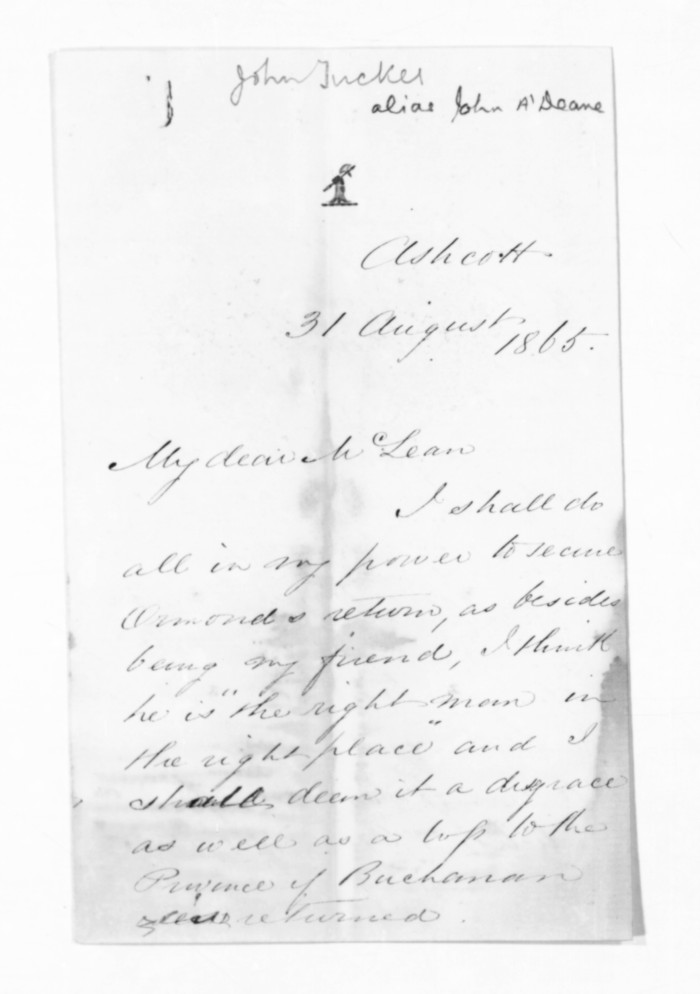 John Tucker
alias John A'Deane
Ashcott
31 August
1865.
My dear McLean
I shall do
all in my power to secure
Ormond's return, as besides
being my friend, I think
he is "the right man in
the right place" and I
shall deem it a disgrace
as well as a loss to the
Province if Buchanan
is returned.